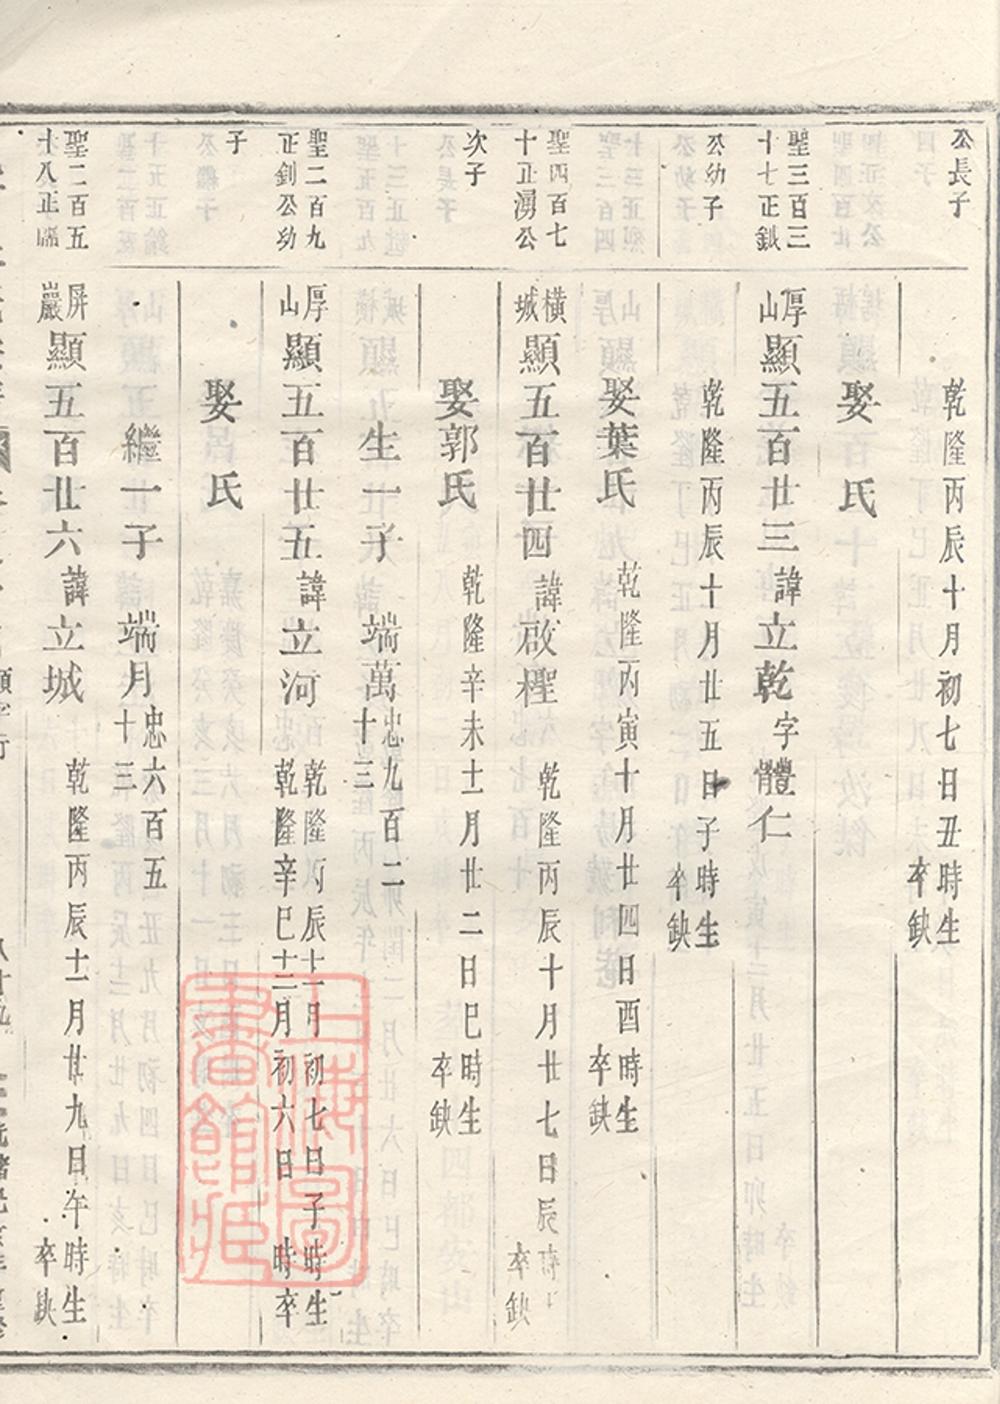 公長子
乾隆丙辰十月初七日丑時生
卒缺
娶　氏
聖三百三
十七正鉞
厚
山
顯五百廿三諱立乾字體仁
公幼子
乾隆丙辰十月廿五日子時生
卒缺
娶葉氏
乾隆丙寅十月廿四日酉時生
卒缺
聖四百七
十正湧公
橫
城
顯五百廿四諱啟檉
乾隆丙辰十月廿七日辰時生
卒缺
次子
娶郭氏
乾隆辛未十一月廿二日巳時生
卒缺
生一子
端萬
忠九百二
十三
聖二百九
正釗公幼
厚
山
顯五百廿五諱立河
乾隆丙辰十一月初七日子時生
乾隆辛巳十二月初六日　時卒
子
娶　氏
繼一子
端月
忠六百五
十三
聖二百五
十八正
屏
巖
顯五百廿六諱立城
乾隆丙辰十一月廿九日午時生
卒缺
上海圖
書館藏